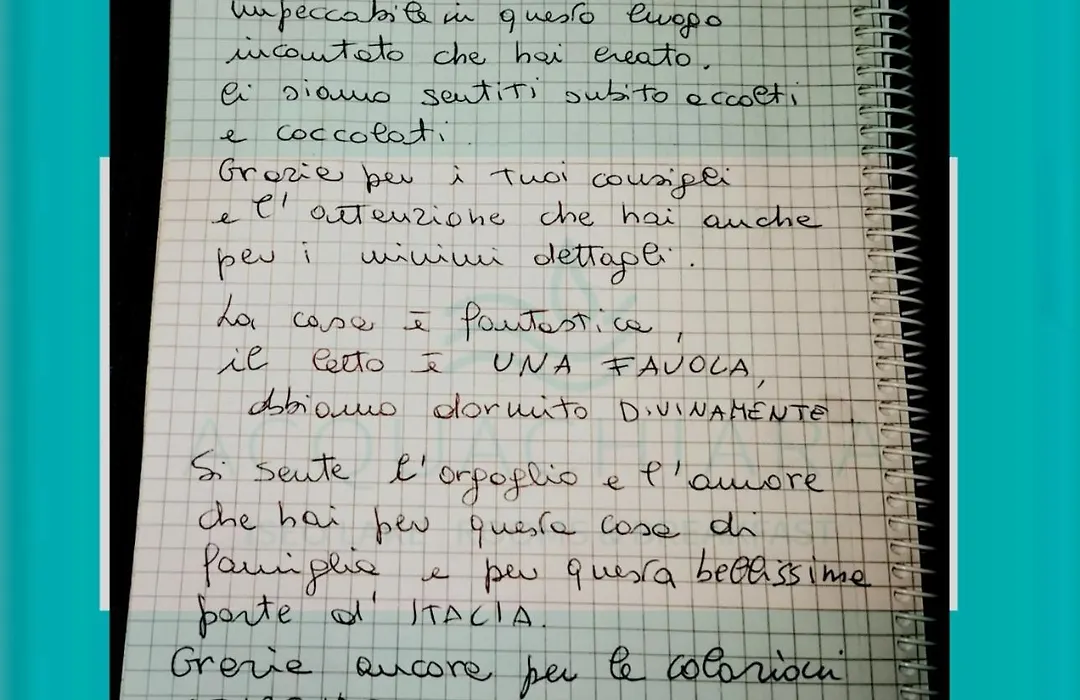 impeccabile in questo luogo
incantato che hai creato.
Ci siamo sentiti subito accolti
e coccolati.
Grazie per i tuoi consigli
e l'attenzione che hai anche
per i minimi dettagli.
La casa è fantastica,
il letto è UNA FAVOLA,
abbiamo dormito DIVINAMENTE.
Si sente l'orgoglio e l'amore
che hai per questa casa di
famiglia e per questa bellissima
parte d'ITALIA.
Grazie ancora per le colazioni
ACQUACHIARA